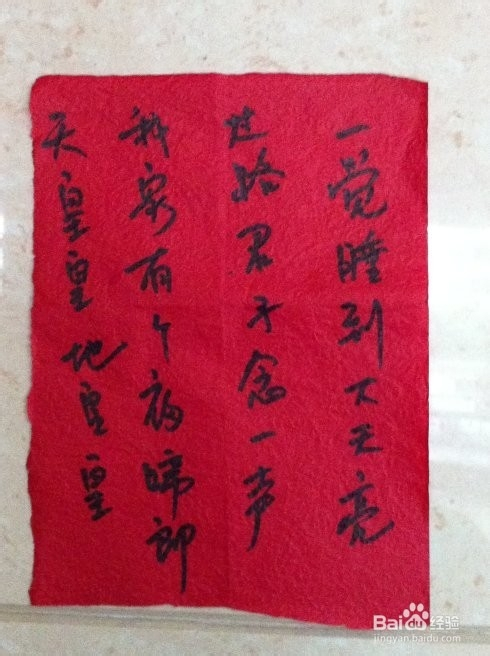 天皇皇地皇皇
我家有个夜啼郎
过路君子念一声
一觉睡到大天亮
Baidu经验
jingyan.baidu.com